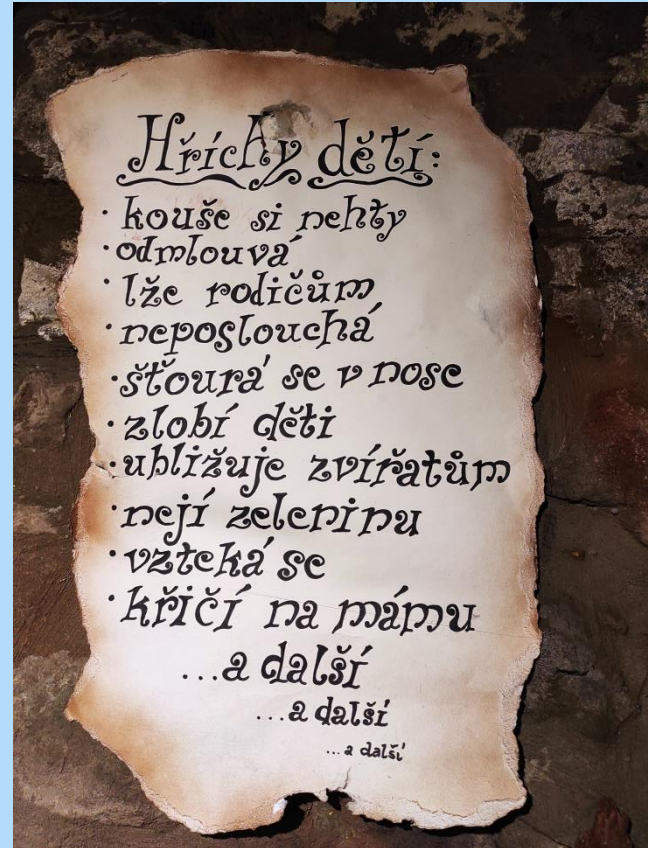 Hříchy dětí:
· kouše si nehty
· odmlouvá
· lže rodičům
· neposlouchá
· šťourá se v nose
· zlobí děti
· ubližuje zvířatům
· nejí zeleninu
· vzteká se
· křičí na mámu
...a další
...a další
...a další